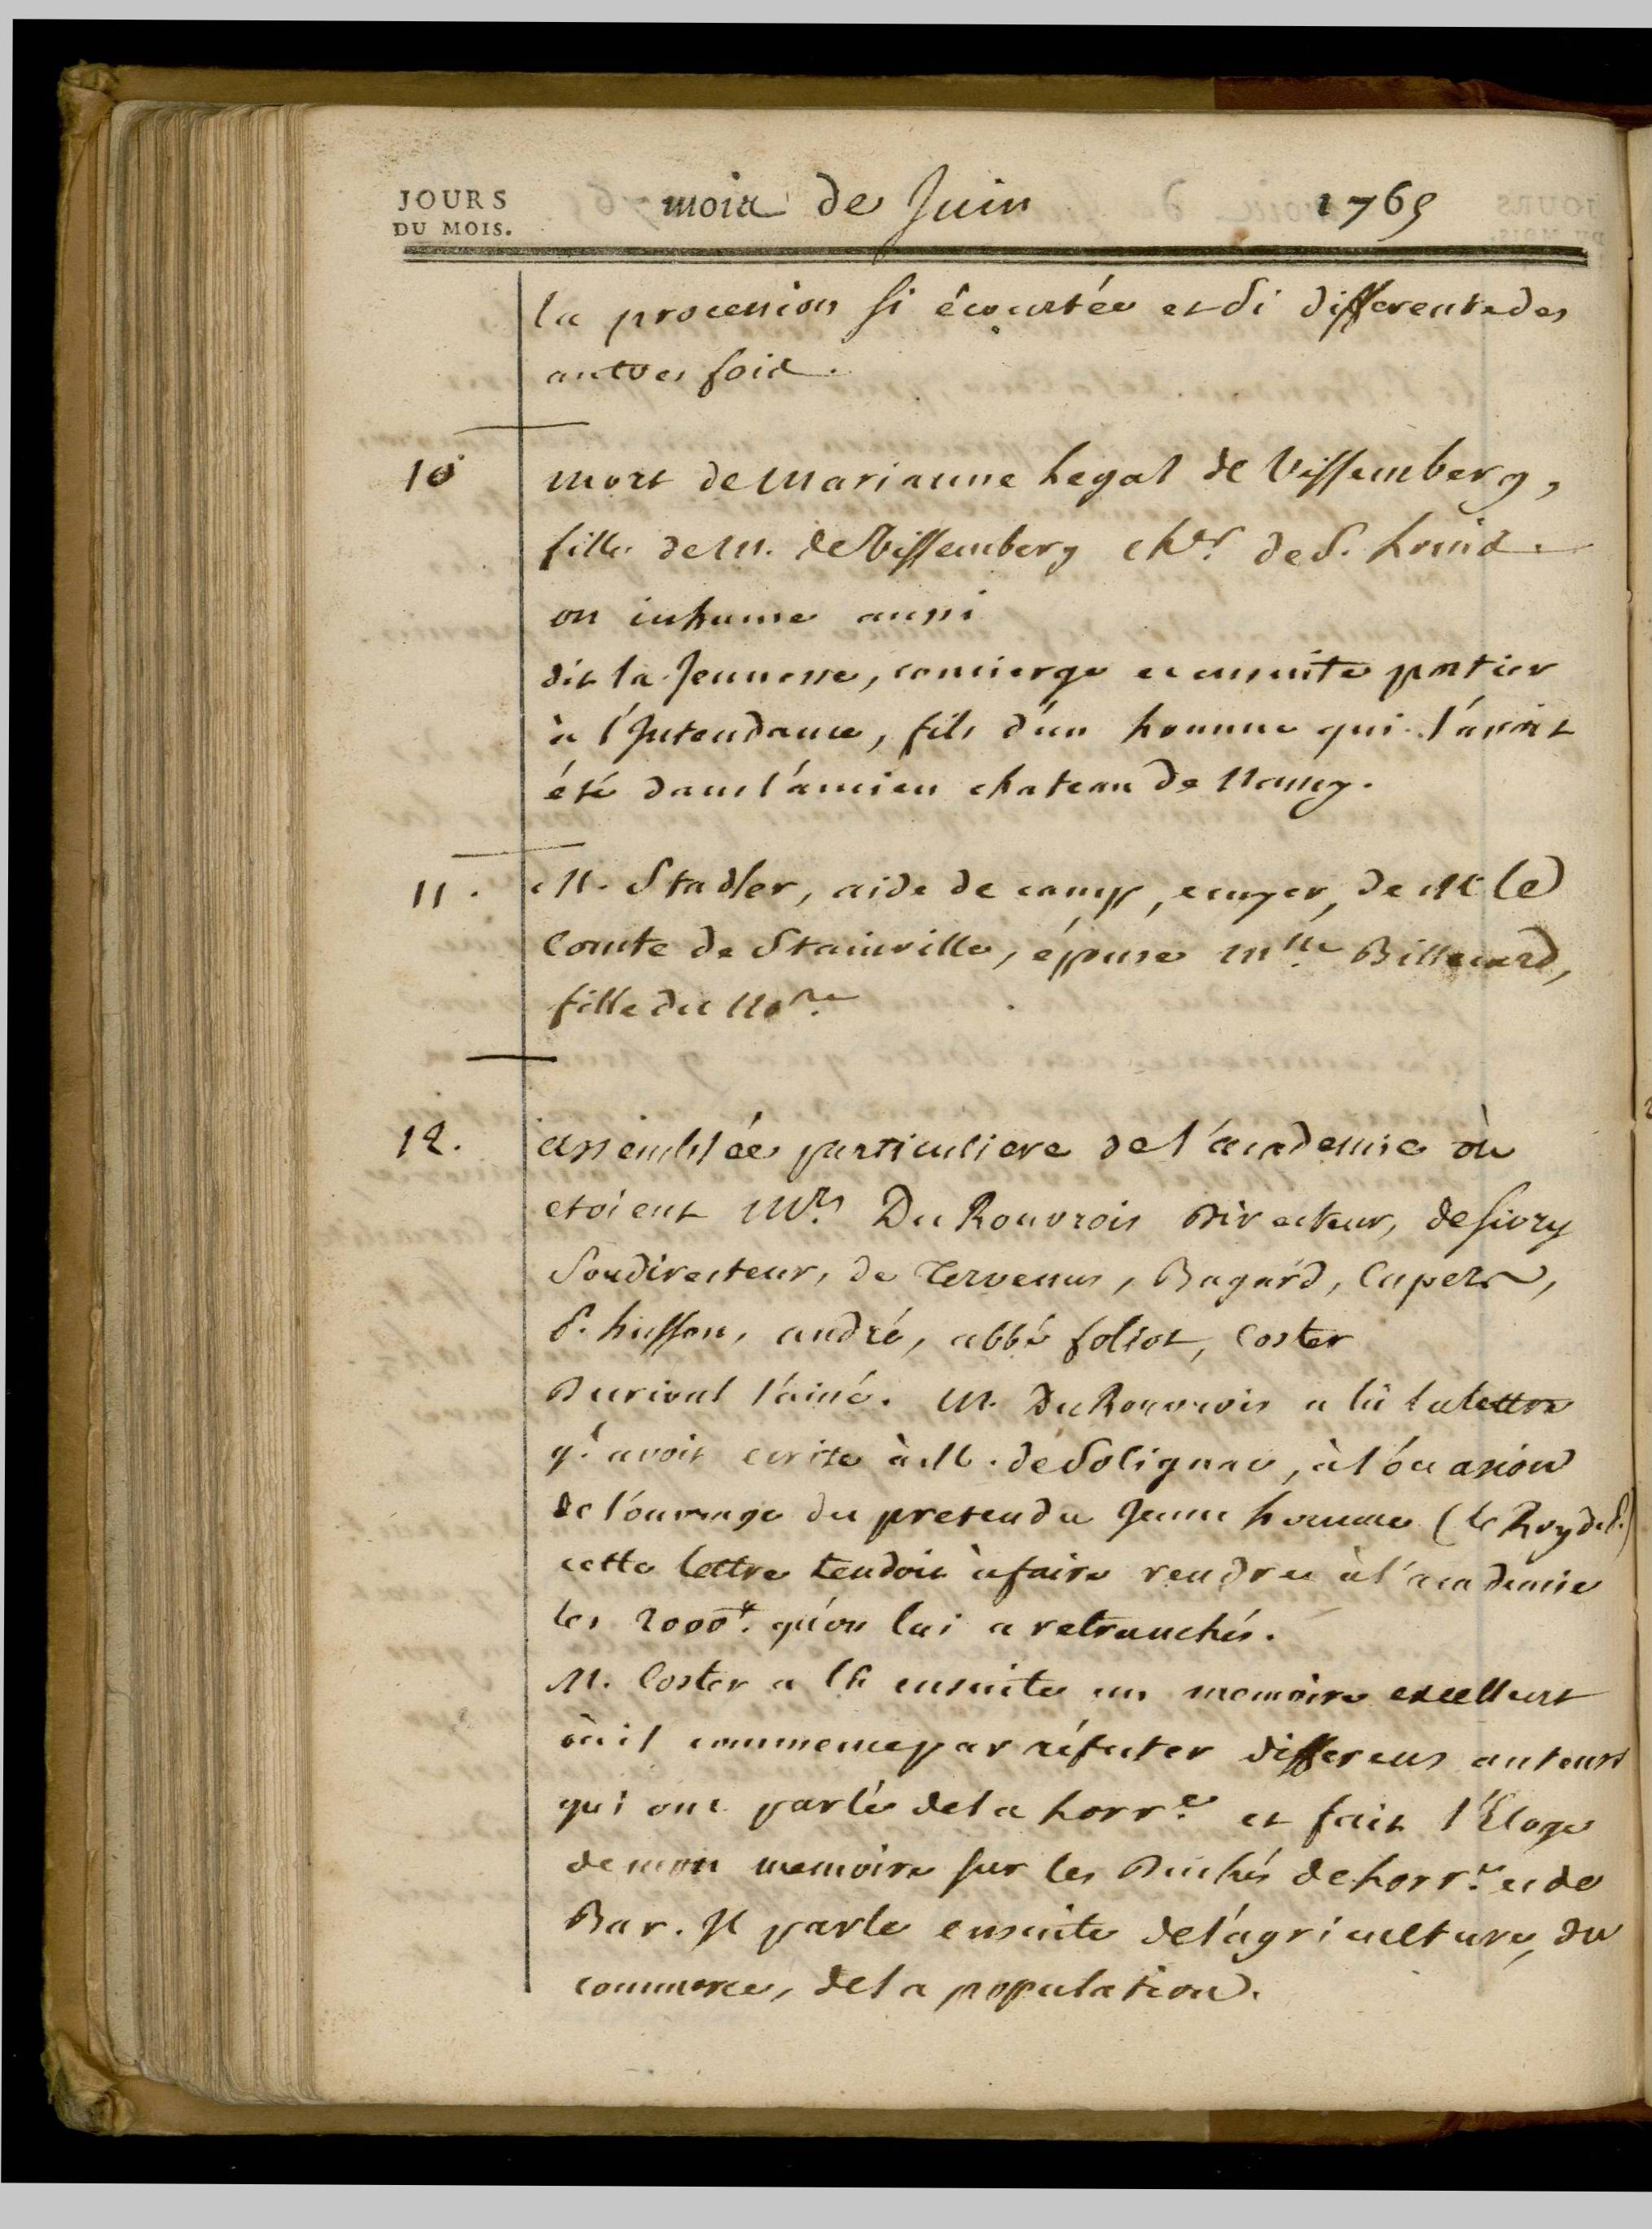 JOURS
DU MOIS.
mois de Juin 1765
la procession si écourtée et si differente des
autres fois.
10 mort de Marianne Legal de Vissemberg,
fille de M. de Vissemberg chev.r de S. Louis.
on inhume aussi
dit la Jeunesse, concierge et ensuite portier
à l'Intendance, fils d'un homme qui l'avoit
été dans l'ancien chateau de Nancy.
11. M. Stadler, aide de camp, ecuyer, de M. le
Comte de Stainville, épouse Mlle Billecard,
fille du No.re
12. assemblée particuliere de l'academie où
etoient Mrs. Du Rouvrois Directeur, de Sivry
Soudirecteur, de Tervenus, Bagard, Cupers,
P. husson, andré, abbé foliot, Coster
Durival l'ainé. M. Du Rouvrois a lû la lettre
q.' avoit ecrite à M. de Solignac, à l'occasion
de l'ouvrage du pretendu Jeune homme (le Roy de P.)
cette lettre tendoit à faire rendre à l'academie
les 2000 #. qu'on lui a retranchés.
M. Coster a lû ensuite un memoire excellent
où il commence par réfuter differens auteurs
qui ont parlé de la Lorr.e et fait l'Eloge
de mon memoire sur les Duchés de Lorr.e et de
Bar. Il parle ensuite de l'agriculture, du
commerce, de la population.